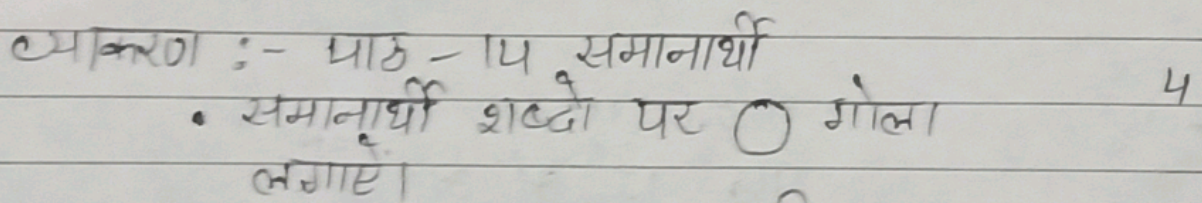 व्याकरण :- पाठ - 14 समानार्थी
• समानार्थी शब्दो पर ○ गोला 4
लगाए।